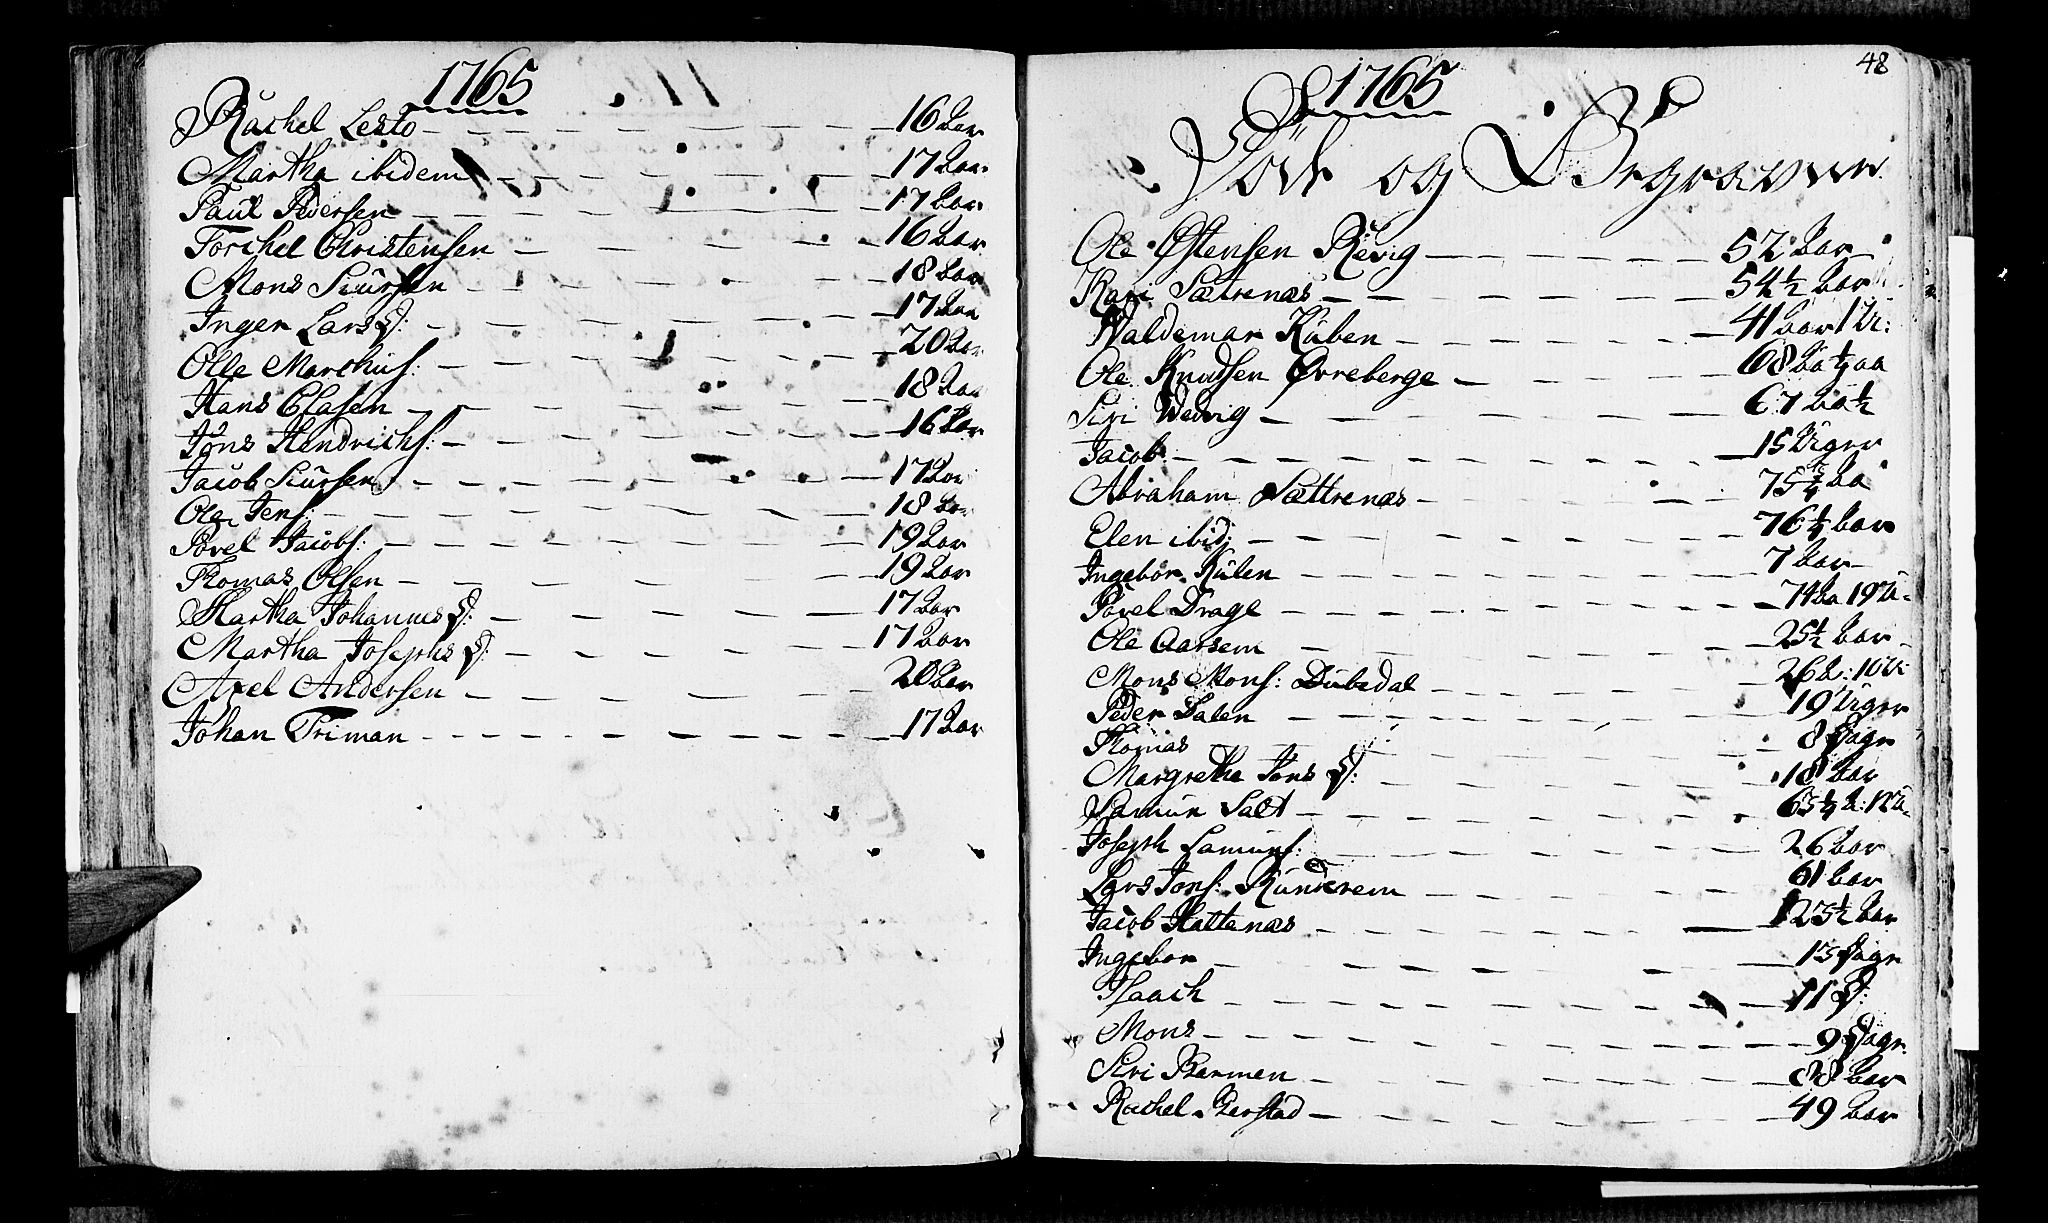 1765
Rachel Lesto - 16 Aar
Martha ibidem - 17 Aar
Paul Pedersen - 17 Aar
Torchel Christensen - 16 Aar
Mons Siursen - 18 Aar
Inger Lars D: - 17 Aar
Olle Marchus: - 20 Aar
Hans Clasen - 18 Aar
Jöns Hendrichs: - 16 Aar
Jacob Siursen - 17 Aar
Ole Jens: - 18 Aar
Povel Jacobs: - 19 Aar
Thomas Olsen - 19 Aar
Martha Johannes D: - 17 Aar
Martha Josephs D: - 17 Aar
Axel Andersen - 20 Aar
Johan Friman - 17 Aar
48
1765
Död og Begravne
Ole Østensen Rævig - 52 Aar
Kari Sætrenæs - 54 1/2 Aar
Waldemar Kulien - 41 Aar 1 U:
Ole Knudsen Øvreberge - 68 Aa 1/4 aa
Siri Wedvig - 67 Aa 1/2
Jacob - 15 Uger
Abraham Sættrenæs - 75 3/4 Aa
Elen ibid: - 76 1/4 Aar
Ingebor Kulen - 7 Aar
Povel Drage - 74 Aa 19 U:
Ole Aarsem - 25 1/2 Aar
Mons Mons: Dubedal - 26 A: 10 U:
Peder Dalen - 19 Uger
Thomas - 8 Dage
Margretha Jons D: - 18 Aar
Samun Salt - 63 1/4 A: 12 U:
Joseph Samuns: - 26 Aar
Lars Jons: Runderem - 61 Aar
Jacob Hattenæs - 23 1/2 Aar
Ingebor - 13 Dage
Isaach - 11 D:
Mons - 9 Dage
Siri Barmen - 88 Aar
Rachel Berstad - 49 Aar